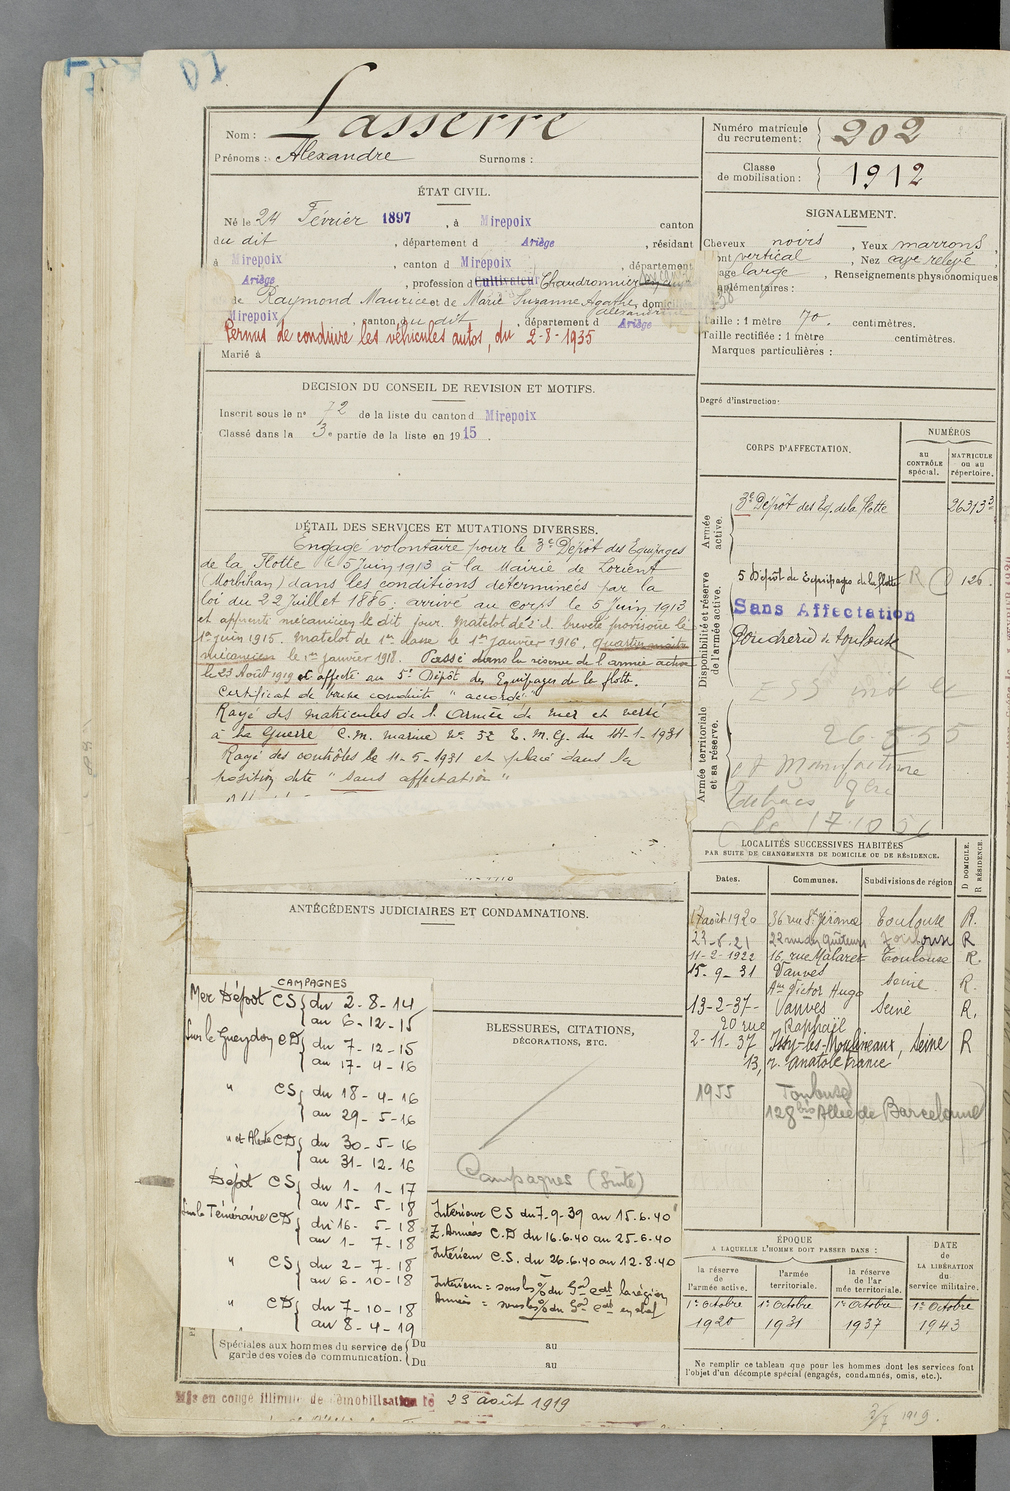 Lasserre
Nom :
Prénoms : Alexandre Surnoms :
Numéro matricule du recrutement : 202
Classe de mobilisation : 1912
ÉTAT CIVIL.
Né le 24 Février 1897, à Mirepoix canton
du dit, département d Ariège, résidant
à Mirepoix, canton d Mirepoix, département
Ariège, profession d Cultivateur Chaudronnier
de Raymond Maurice et de Marie Suzanne Agathe, domicilié
Mirepoix, canton du dit, département d Ariège
Permis de conduire les véhicules autos, du 2-8-1935
Marié à
SIGNALEMENT.
Cheveux noirs, Yeux marrons,
vertical, Nez cave relevé,
large, Renseignements physionomiques
Taille : 1 mètre 70. centimètres.
Taille rectifiée : 1 mètre centimètres.
Marques particulières :
Degré d'instruction :
DECISION DU CONSEIL DE REVISION ET MOTIFS.
Inscrit sous le n° 72 de la liste du canton d Mirepoix
Classé dans la 3e partie de la liste en 1915.
DÉTAIL DES SERVICES ET MUTATIONS DIVERSES.
Engagé volontaire pour le 3e Dépôt des Equipages
de la Flotte le 5 Juin 1913 à la Mairie de Lorient
(Morbihan) dans les conditions déterminées par la
loi du 22 Juillet 1886 ; arrivé au corps le 5 Juin 1913
et apprenti mécanicien le dit jour. Matelot de 2e cl. breveté provisoire le
1er juin 1915. Matelot de 1ère classe le 1er Janvier 1916. Quartier maître
mécanicien le 1er janvier 1918. Passé dans la réserve de l'armée active
le 23 Août 1919 et affecté au 5e Dépôt des Equipages de la flotte.
Certificat de bonne conduite "accordé"
Rayé des matricules de l'Armée de mer et versé
à la Guerre C.M. marine N° 52 E.M.G. du 14-1-1931
Rayé des contrôles le 11-5-1931 et placé dans la
position dite "sans affectation"
CORPS D'AFFECTATION.
NUMÉROS
au CONTRÔLE spécial.
MATRICULE ou au répertoire.
Armée active.
3e Dépôt des Eq. de la flotte 26313
Disponibilité et réserve de l'armée active.
5 Dépôt des Equipages de la flotte R 126.
Sans Affectation
Poudrerie de Toulouse
Armée territoriale et sa réserve.
26-5-55
Manufacture
le 17.10
LOCALITÉS SUCCESSIVES HABITÉES
PAR SUITE DE CHANGEMENTS DE DOMICILE OU DE RÉSIDENCE.
Dates. Communes. Subdivisions de région D DOMICILE. R RÉSIDENCE.
17 août 1920 36 rue St Jérome Toulouse R.
23-6-21 22 rue des quêteurs Toulouse R
11-2-1922 16, rue Malaret Toulouse R.
15-9-31 Vanves Seine R.
Ave Victor Hugo
13-2-37- Vanves Seine R.
20 rue Raphaël
2-11-37 Issy-les-Moulineaux, Seine R
13, r. Anatole France
1955 Toulouse
128 bis Allée de Barcelonne
ANTÉCÉDENTS JUDICIAIRES ET CONDAMNATIONS.
CAMPAGNES
Mer Dépôt CS du 2-8-14
au 6-12-15
Sur le Gueydon CD du 7-12-15
au 17-4-16
" CS du 18-4-16
au 29-5-16
" et Alerte CD du 30-5-16
au 31-12-16
Dépôt CS du 1-1-17
au 15-5-18
Sur le Téméraire CD du 16-5-18
au 1-7-18
" CS du 2-7-18
au 6-10-18
" CD du 7-10-18
au 8-4-19
BLESSURES, CITATIONS,
DÉCORATIONS, ETC.
Campagnes (Suite)
Intérieur CS du 7-9-39 au 15.6.40
Z. Armées C.D du 16.6.40 au 25-6.40
Intérieur C.S. du 26.6.40 au 12-8.40
Spéciales aux hommes du service de
garde des voies de communication.
Du au
Du au
ÉPOQUE
A LAQUELLE L'HOMME DOIT PASSER DANS :
la réserve de l'armée active.
l'armée territoriale.
la réserve de l'armée territoriale.
DATE DE LA LIBÉRATION du service militaire.
1er Octobre 1er Octobre 1er Octobre 1er Octobre
1920 1931 1937 1943
Ne remplir ce tableau que pour les hommes dont les services font
l'objet d'un décompte spécial (engagés, condamnés, omis, etc.).
Mis en congé illimité de démobilisation le 23 août 1919